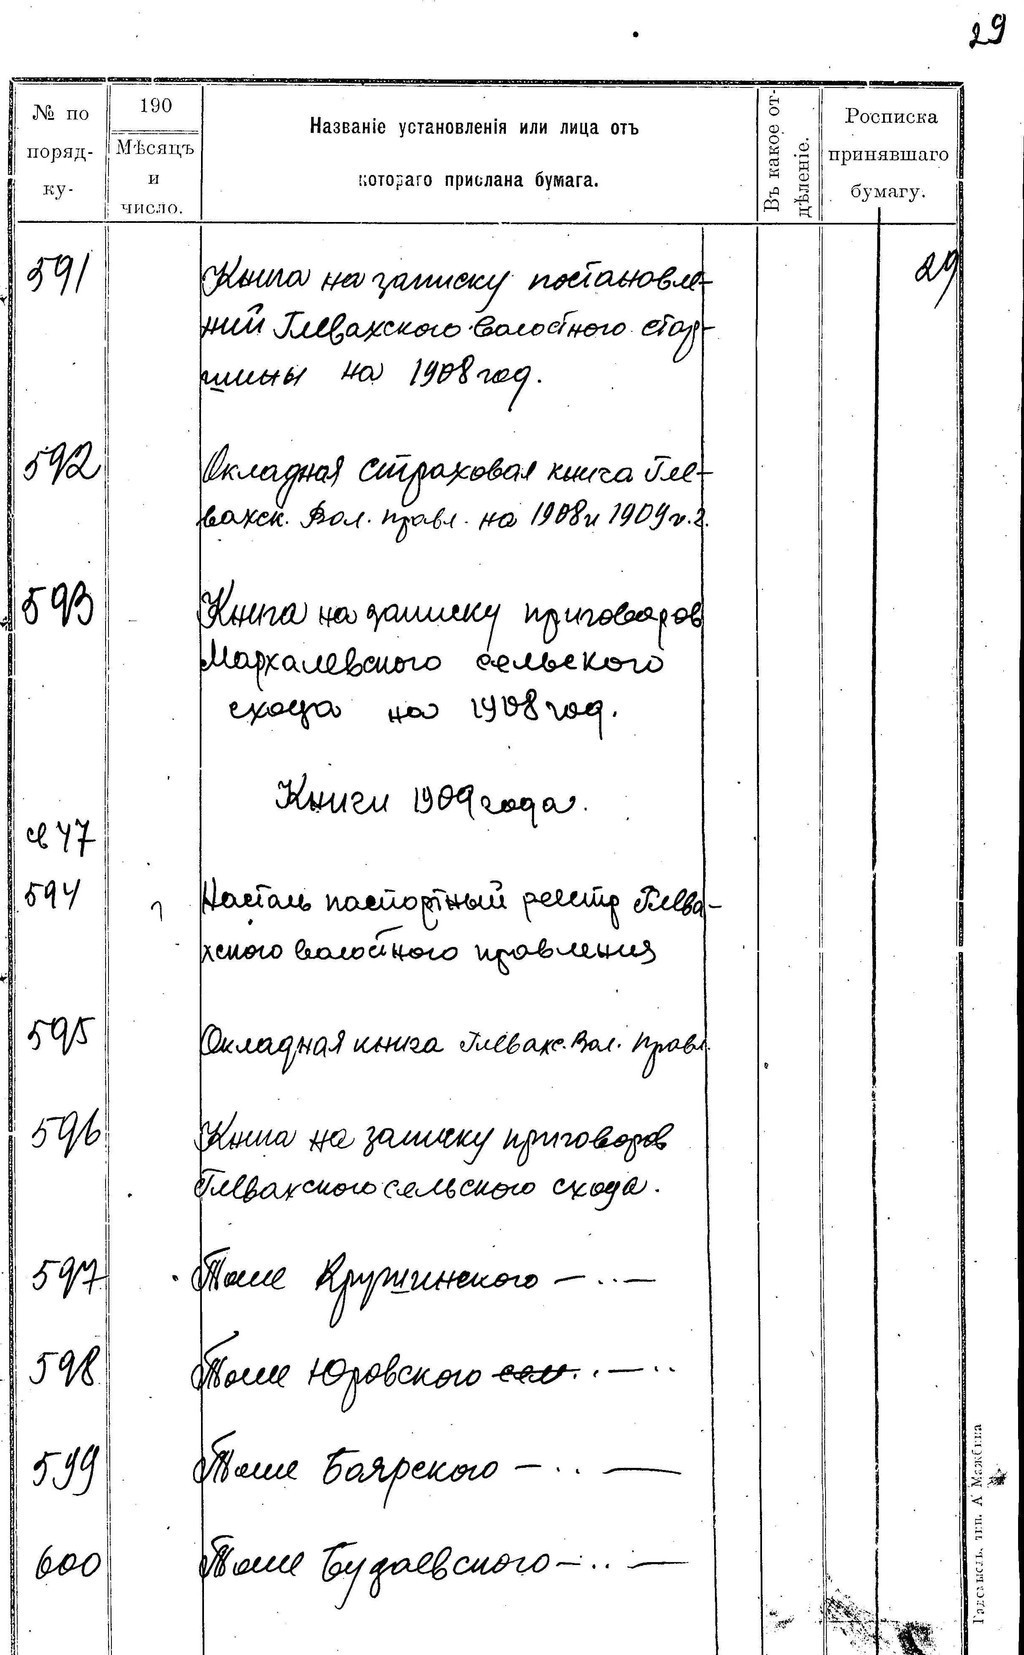 29
№ по поряд- ку-
190
Мѣсяцъ и число.
Названіе установленія или лица отъ
котораго прислана бумага.
Въ какое от- дѣленіе.
Росписка принявшаго бумагу.
29
591 Книга на записку постановле-
ний Глевахского волостного стар-
шины на 1908 год.
592 Окладная страховая книга Гле-
вахск. Вол. правл. на 1908 и 1909 г.г.
593 Книга на записку приговоров
Мархалевского сельского
схода на 1908 год.
Книги 1909 года.
св 47
594 Настоль паспортный реестр Глева-
хского волостного правления
595 Окладная книга Глевахс. Вол. Правл.
596 Книга на записку приговоров
Глевахского сельского схода.
597 Тоже Кружинского — .. —
598 Тоже Юровского сел .. — ..
599 Тоже Боярского — .. —
600 Тоже Будаевского — .. —
тип. А